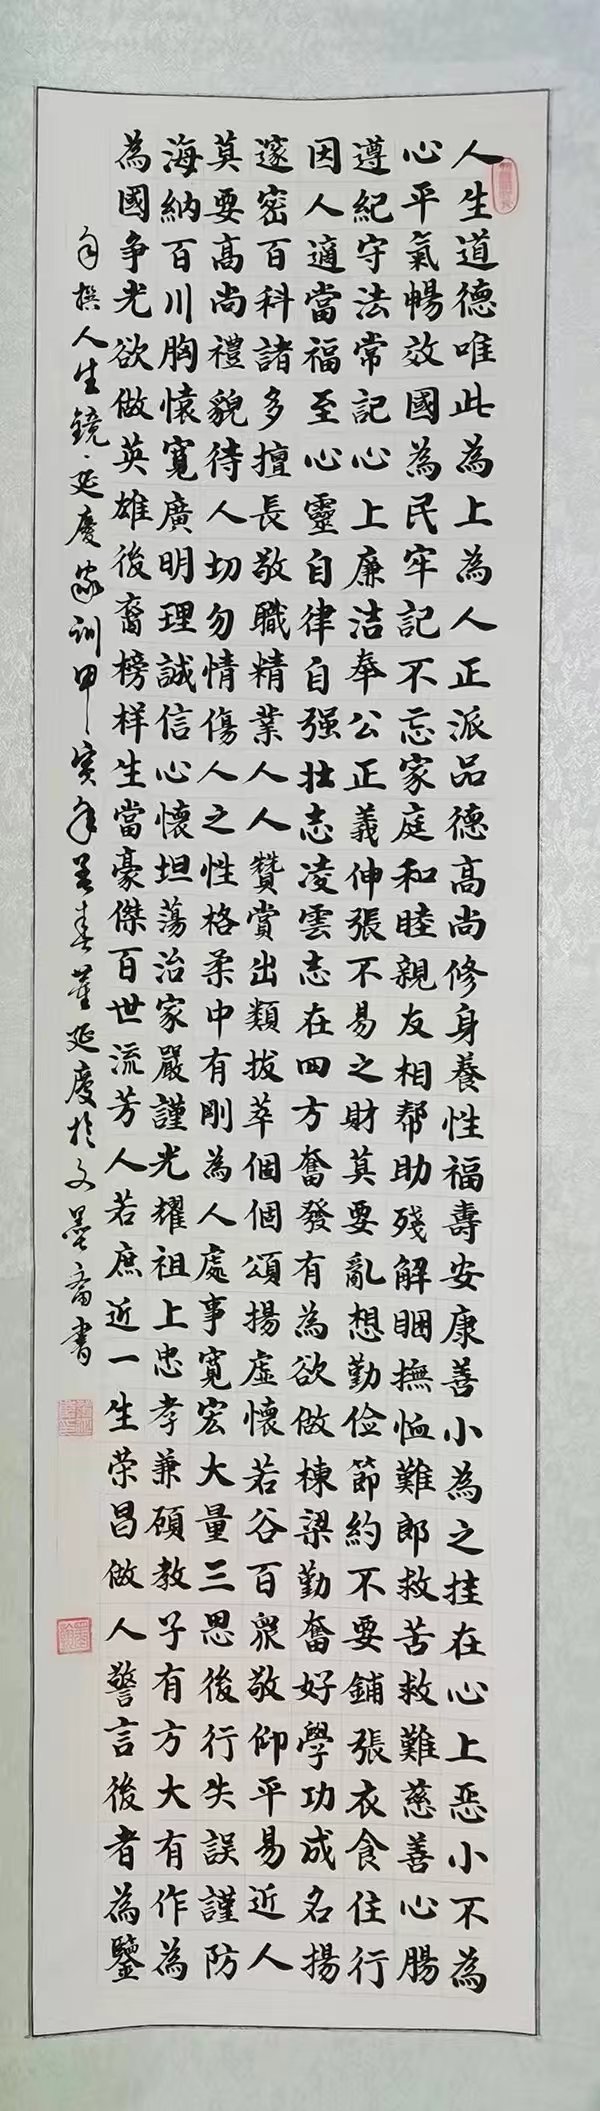 人生道德唯此為上為人正派品德高尚修身養性福壽安康善小為之挂在心上惡小不為
心平氣暢效國為民牢記不忘家庭和睦親友相帮助殘解困撫恤難郎救苦救難慈善心腸
遵紀守法常記心上廉洁奉公正義伸張不易之財莫要亂想勤俭節約不要鋪張衣食住行
因人適當福至心靈自律自强壮志凌雲志在四方奮發有為欲做棟梁勤奮好學功成名揚
邃密百科諸多擅長敬職精業人人贊賞出類拔萃個個頌揚虛懷若谷百衆敬仰平易近人
莫要高尚禮貌待人切勿情傷人之性格柔中有剛為人處事寬宏大量三思後行失誤謹防
海納百川胸懷寬廣明理誠信心懷坦蕩治家嚴謹光耀祖上忠孝兼顧教子有方大有作為
為國争光欲做英雄後裔榜样生當豪傑百世流芳人若庶近一生荣昌做人警言後者為鑒
自撰人生鏡延慶家訓甲寅年孟春董延慶於文墨斋書